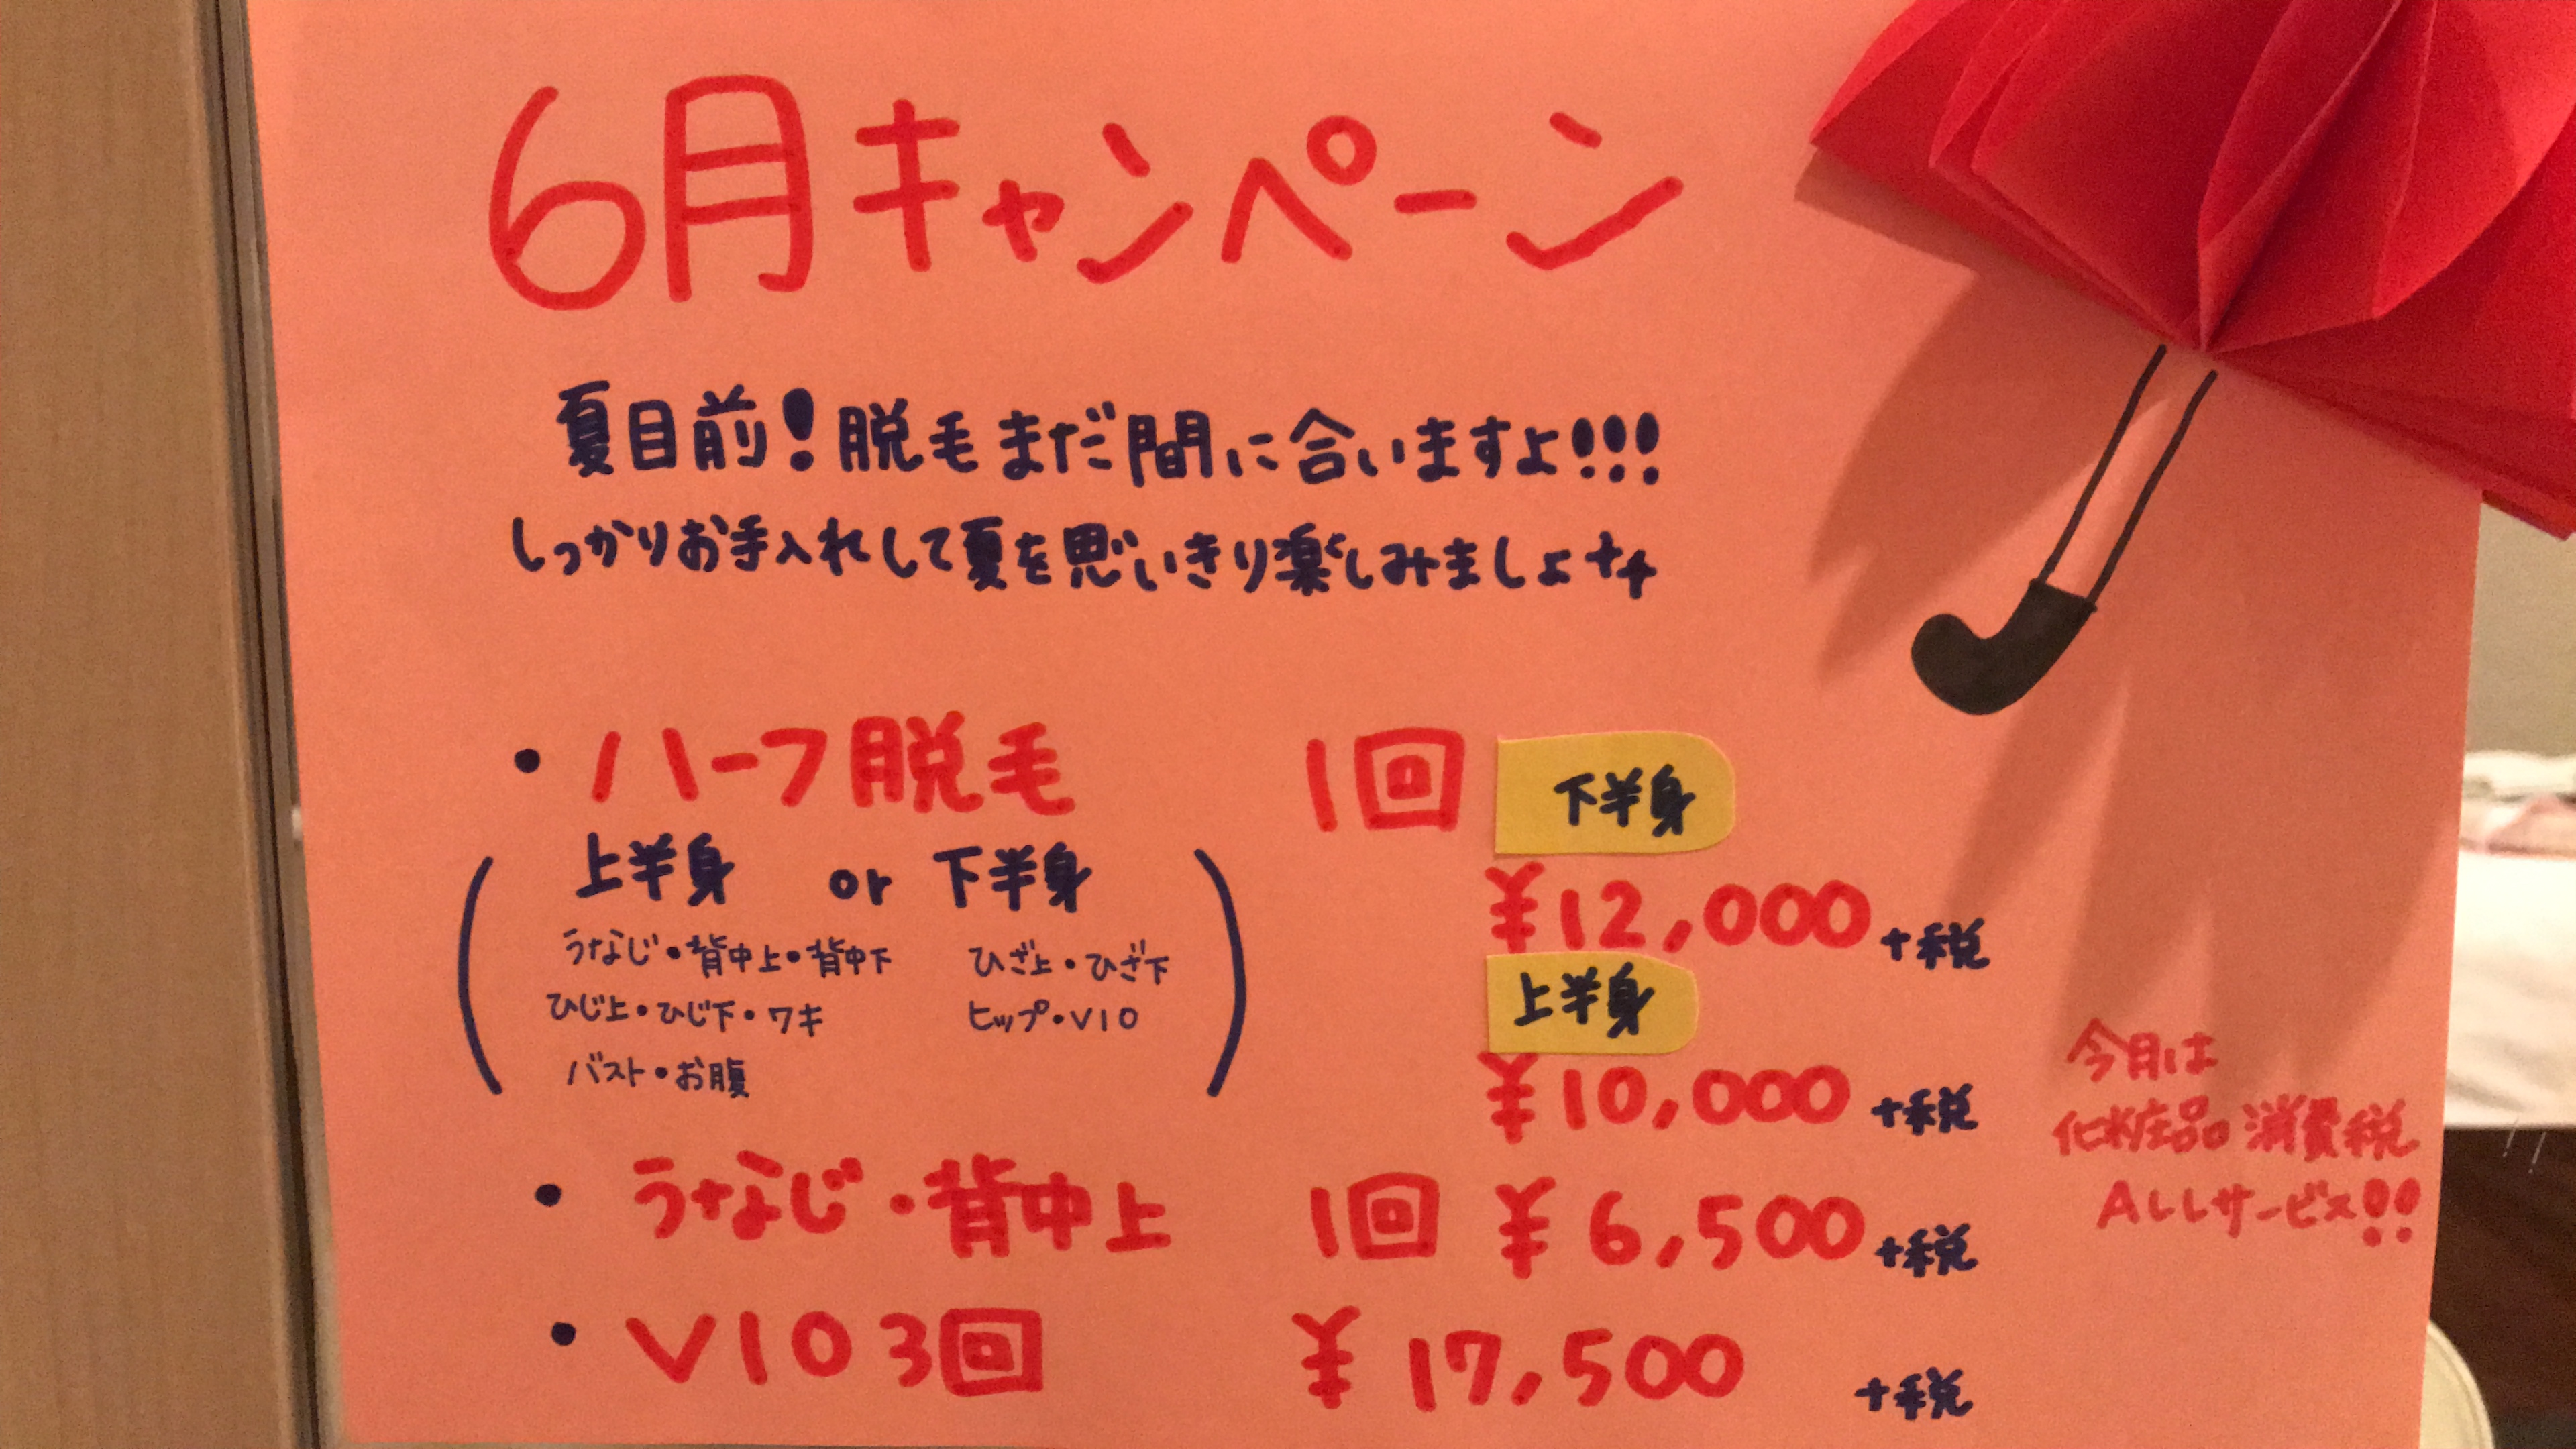 6月キャンペーン
夏目前!脱毛まだ間に合いますよ!!!
しっかりお手入れして夏を思いきり楽しみましょ++
・ハーフ脱毛 1回 下半身
¥12,000+税
(上半身 or 下半身)
うなじ・背中上・背中下 ひざ上・ひざ下
ひじ上・ひじ下・ワキ ヒップ・VIO
バスト・お腹
上半身
¥10,000+税
・うなじ・背中上 1回 ¥6,500+税
・VIO 3回 ¥17,500 +税
今月は
化粧品消費税
ALLサービス!!